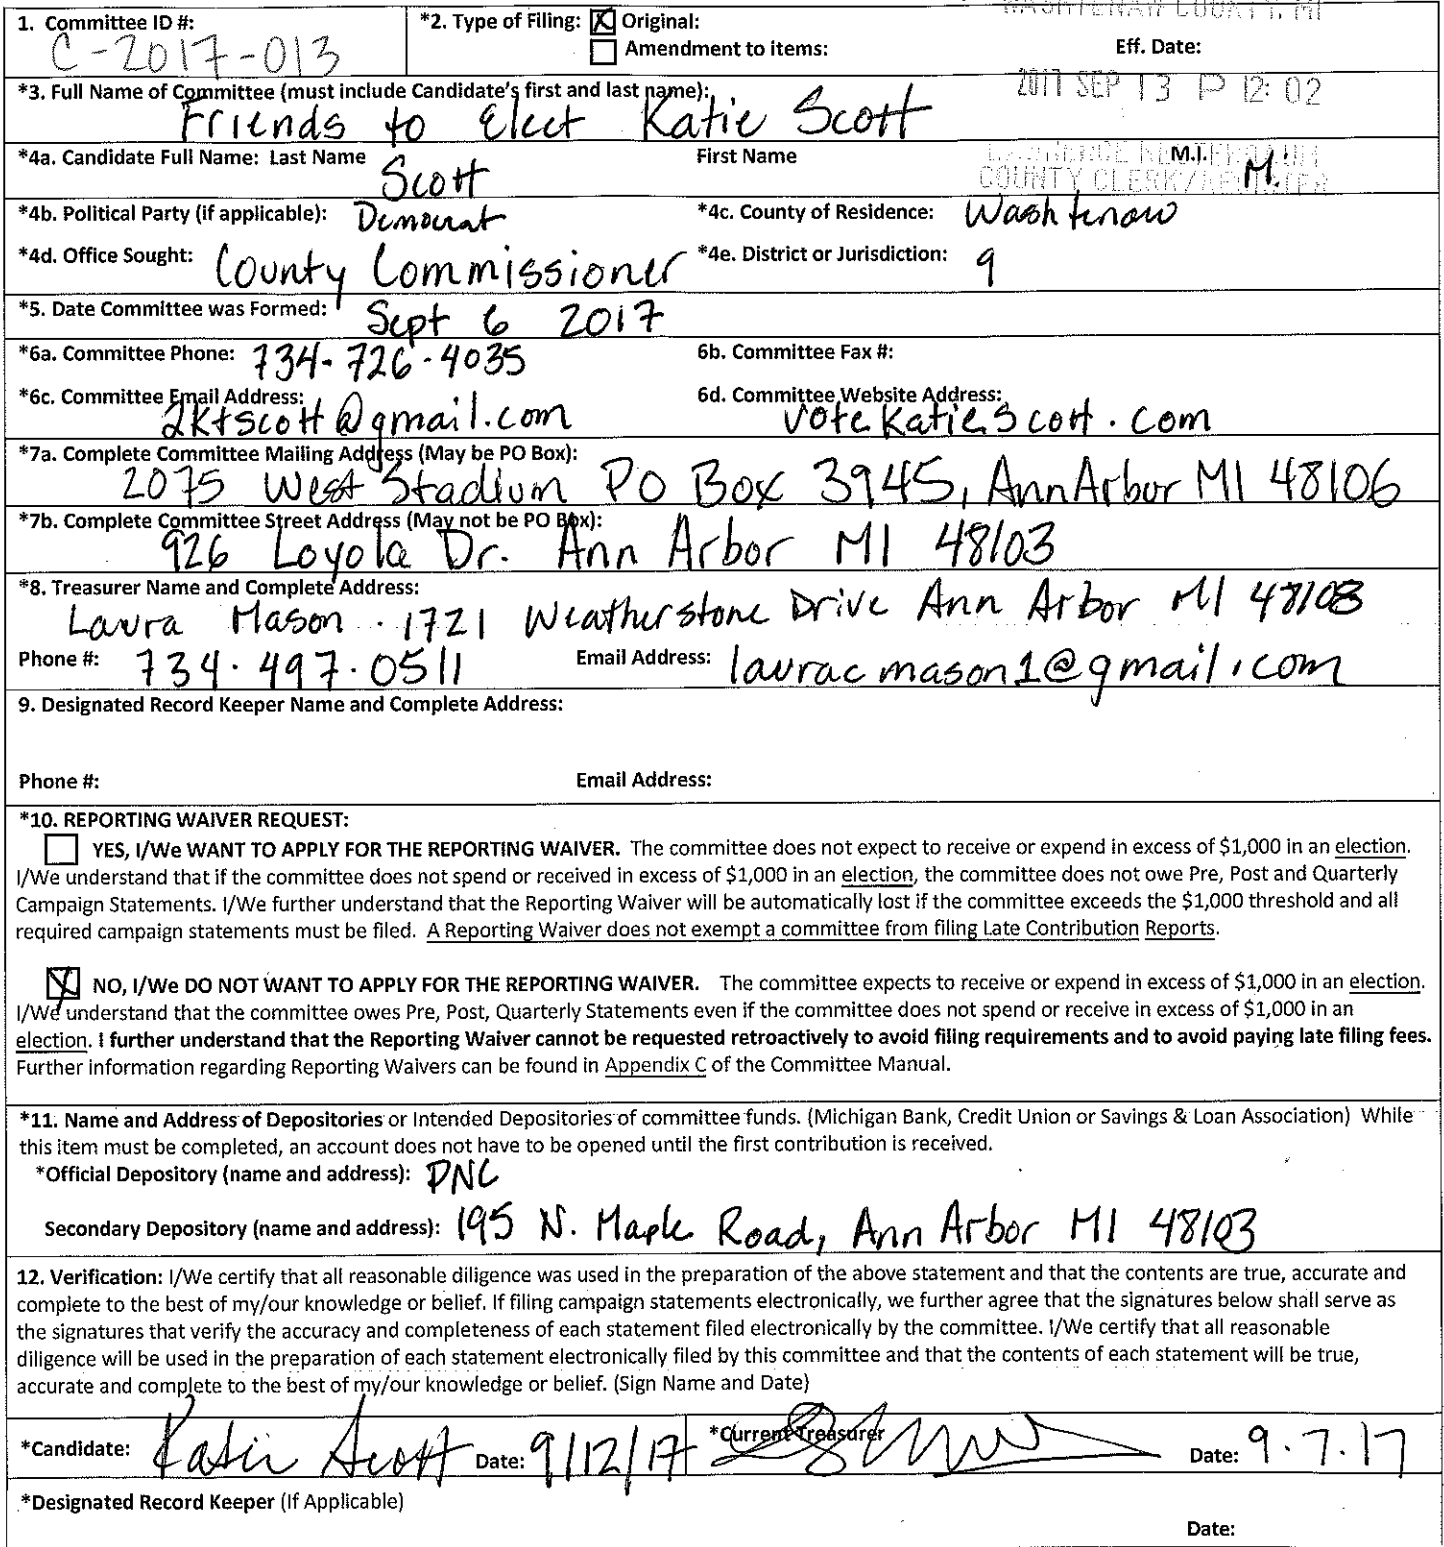 WASHTENAW COUNTY, MI
1. Committee ID #: *2. Type of Filing: Original:
C-2017-013 Amendment to items: Eff. Date:
2017 SEP 13 P 12:02
*3. Full Name of Committee (must include Candidate's first and last name):
Friends to Elect Katie Scott
*4a. Candidate Full Name: Last Name First Name M.I.
Scott M.
COUNTY CLERK/REGISTER
*4b. Political Party (if applicable): Democrat *4c. County of Residence: Washtenaw
*4d. Office Sought: County Commissioner *4e. District or Jurisdiction: 9
*5. Date Committee was Formed: Sept 6 2017
*6a. Committee Phone: 734-726-4035 6b. Committee Fax #:
*6c. Committee Email Address: 6d. Committee Website Address:
2ktscott@gmail.com votekatiescott.com
*7a. Complete Committee Mailing Address (May be PO Box):
2075 West Stadium PO Box 3945, Ann Arbor MI 48106
*7b. Complete Committee Street Address (May not be PO Box):
926 Loyola Dr. Ann Arbor MI 48103
*8. Treasurer Name and Complete Address:
Laura Mason. 1721 Weatherstone Drive Ann Arbor MI 48108
Phone #: 734.497.0511 Email Address: lauracmason1@gmail.com
9. Designated Record Keeper Name and Complete Address:
Phone #: Email Address:
*10. REPORTING WAIVER REQUEST:
YES, I/We WANT TO APPLY FOR THE REPORTING WAIVER. The committee does not expect to receive or expend in excess of $1,000 in an election.
I/We understand that if the committee does not spend or received in excess of $1,000 in an election, the committee does not owe Pre, Post and Quarterly
Campaign Statements. I/We further understand that the Reporting Waiver will be automatically lost if the committee exceeds the $1,000 threshold and all
required campaign statements must be filed. A Reporting Waiver does not exempt a committee from filing Late Contribution Reports.
NO, I/We DO NOT WANT TO APPLY FOR THE REPORTING WAIVER. The committee expects to receive or expend in excess of $1,000 in an election.
I/We understand that the committee owes Pre, Post, Quarterly Statements even if the committee does not spend or receive in excess of $1,000 in an
election. I further understand that the Reporting Waiver cannot be requested retroactively to avoid filing requirements and to avoid paying late filing fees.
Further information regarding Reporting Waivers can be found in Appendix C of the Committee Manual.
*11. Name and Address of Depositories or Intended Depositories of committee funds. (Michigan Bank, Credit Union or Savings & Loan Association) While
this item must be completed, an account does not have to be opened until the first contribution is received.
*Official Depository (name and address): PNC
Secondary Depository (name and address): 195 N. Maple Road, Ann Arbor MI 48103
12. Verification: I/We certify that all reasonable diligence was used in the preparation of the above statement and that the contents are true, accurate and
complete to the best of my/our knowledge or belief. If filing campaign statements electronically, we further agree that the signatures below shall serve as
the signatures that verify the accuracy and completeness of each statement filed electronically by the committee. I/We certify that all reasonable
diligence will be used in the preparation of each statement electronically filed by this committee and that the contents of each statement will be true,
accurate and complete to the best of my/our knowledge or belief. (Sign Name and Date)
*Candidate: Katie Scott Date: 9/12/17 *Current Treasurer Date: 9.7.17
*Designated Record Keeper (If Applicable)
Date: